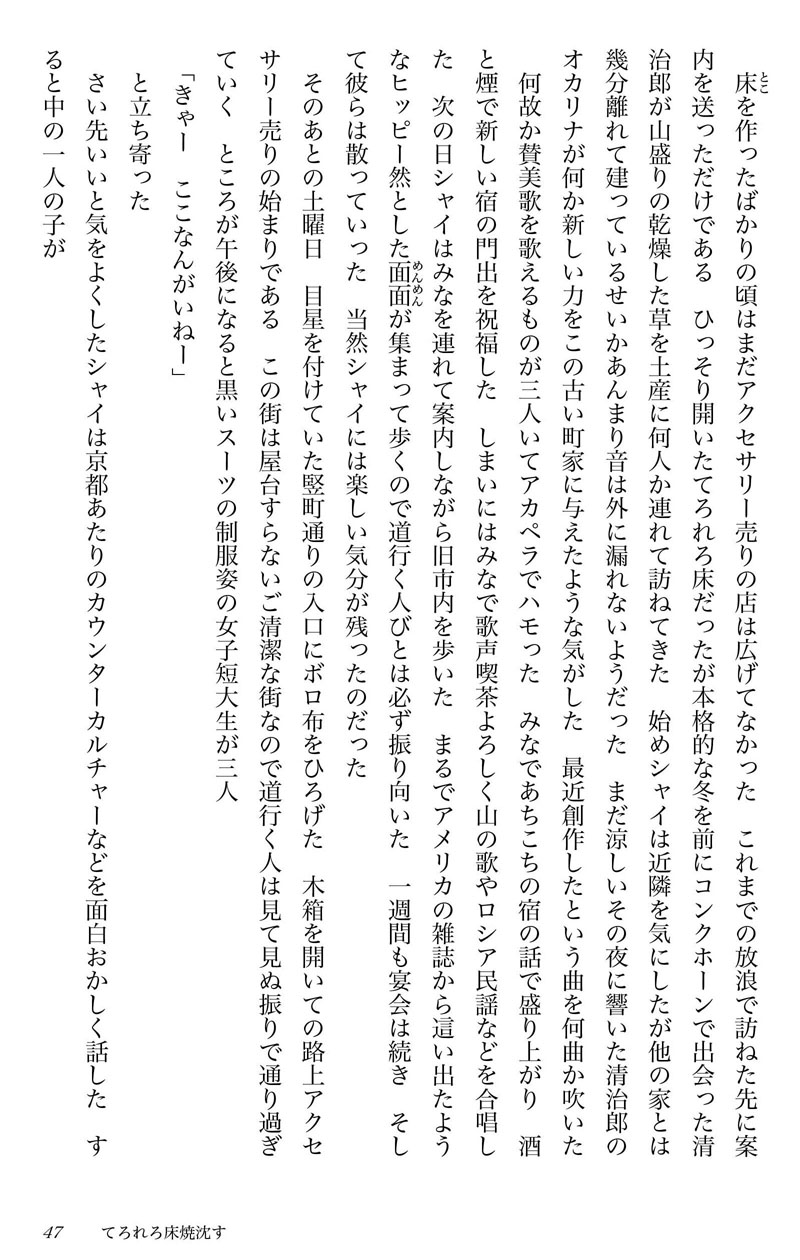 床を作ったばかりの頃はまだアクセサリー売りの店は広げてなかった　これまでの放浪で訪ねた先に案
内を送っただけである　ひっそり開いたてろれろ床だったが本格的な冬を前にコンクホーンで出会った清
治郎が山盛りの乾燥した草を土産に何人か連れて訪ねてきた　始めシャイは近隣を気にしたが他の家とは
幾分離れて建っているせいかあんまり音は外に漏れないようだった　まだ涼しいその夜に響いた清治郎の
オカリナが何か新しい力をこの古い町家に与えたような気がした　最近創作したという曲を何曲か吹いた
何故か賛美歌を歌えるものが三人いてアカペラでハモった　みなであちこちの宿の話で盛り上がり　酒
と煙で新しい宿の門出を祝福した　しまいにはみなで歌声喫茶よろしく山の歌やロシア民謡などを合唱し
た　次の日シャイはみなを連れて案内しながら旧市内を歩いた　まるでアメリカの雑誌から這い出たよう
なヒッピー然とした面面が集まって歩くので道行く人びとは必ず振り向いた　一週間も宴会は続き　そし
て彼らは散っていった　当然シャイには楽しい気分が残ったのだった
そのあとの土曜日　目星を付けていた竪町通りの入口にボロ布をひろげた　木箱を開いての路上アクセ
サリー売りの始まりである　この街は屋台すらないご清潔な街なので道行く人は見て見ぬ振りで通り過ぎ
ていく　ところが午後になると黒いスーツの制服姿の女子短大生が三人
「きゃー　ここなんがいねー」
と立ち寄った
さい先いいと気をよくしたシャイは京都あたりのカウンターカルチャーなどを面白おかしく話した　す
ると中の一人の子が
とこ
めんめん
47　てろれろ床焼沈す